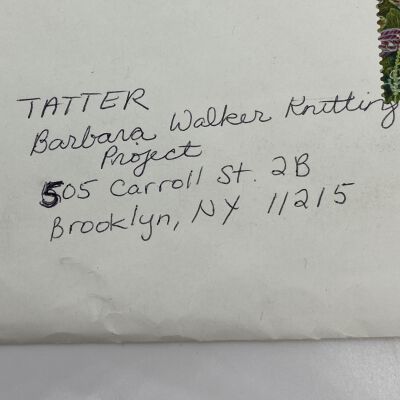 TATTER
Barbara Walker Knitting
Project
505 Carroll St. 2B
Brooklyn, NY 11215